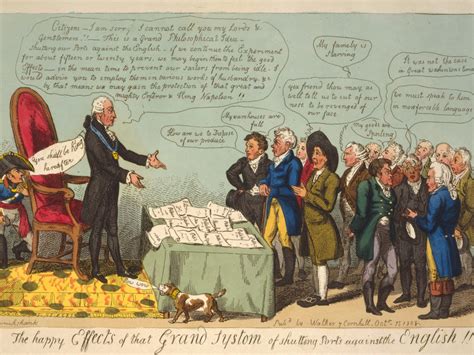 Citizens – I am sorry I cannot call you my Lords &
Gentlemen!! – This is a Grand Philosophical Idea –
shutting our Ports against the English – if we continue the Experiment
for about fifteen or twenty years, we may begin to feel the good
Effects – in the mean time to prevent our sailors from being idle, I
would advise you to employ them in various works of husbandry &c
by that means we may gain the protection of that great and
mighty Emperor Napoleon!!
You shall be King
hereafter
How are we to Dispose
of our produce
My warehouses are
full
My family is
Starving
you friend thou may as
well tell us to cut of our
nose to be revenged of our
face
My goods are
Spoiling
It was not the case
in Great Washintons time
We must speak to him
in more forcible language
Pubd by Walker 7 Cornhill Octr 15 1808
The happy Effects of that Grand System of shutting Ports against the English